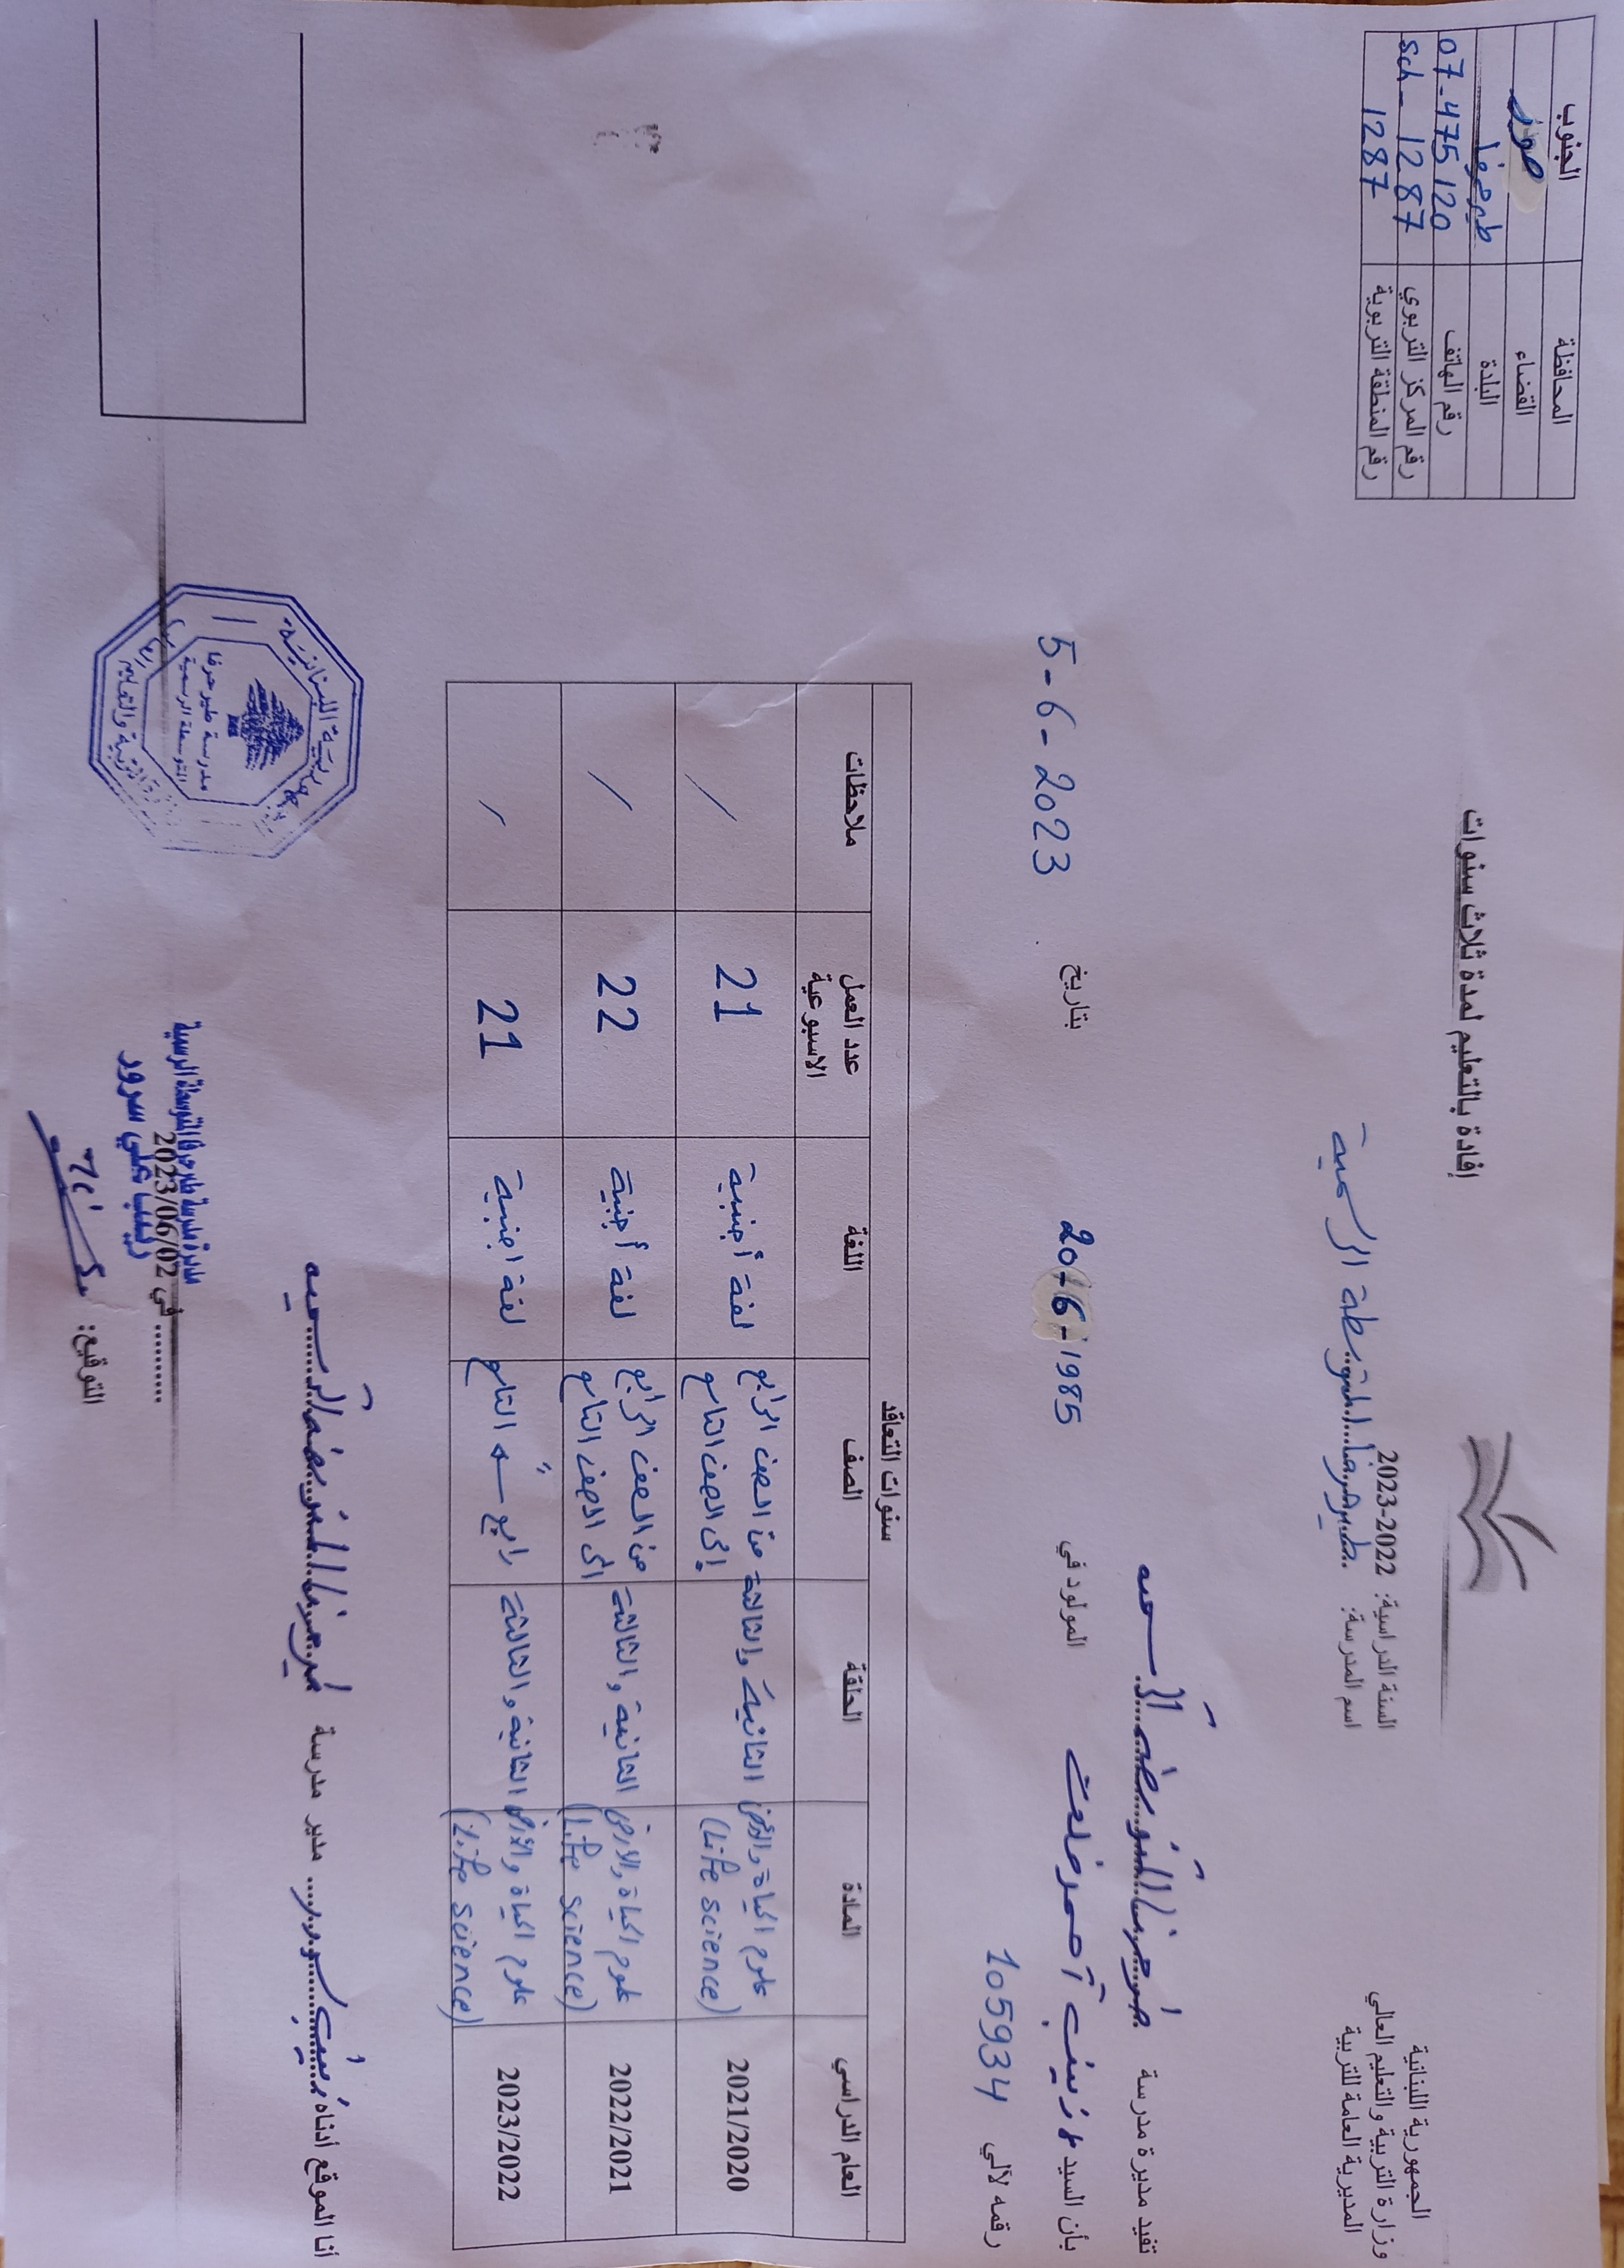 الجمهورية اللبنانية
وزارة التربية والتعليم العالي
المديرية العامة للتربية
السنة الدراسية: 2022-2023
اسم المدرسة: طيرحرفا المتوسطة الرسمية
المحافظة الجنوب
القضاء صور
البلدة طيرحرفا
رقم الهاتف 07-475120
رقم المركز التربوي Sch-1287
رقم المنطقة التربوية 1287
إفادة بالتعليم لمدة ثلاث سنوات
تفيد مديرة مدرسة طيرحرفا المتوسطة الرسمية
بأن السيدة زينب أحمد المولود في 20-6-1985 بتاريخ 5-6-2023
رقمه لآلي 1059934
سنوات التعاقد
العام الدراسي المادة الحلقة الصف اللغة عدد العمل الاسبوعية ملاحظات
2021/2020 علوم الحياة والأرض (Life science) الثانية والثالثة من الصف الرابع إلى الصف التاسع لغة أجنبية 21 /
2022/2021 علوم الحياة والارض (Life science) الثانية والثالثة من الصف الرابع الى الصف التاسع لغة أجنبية 22 /
2023/2022 علوم الحياة والأرض (Life science) الثانية والثالثة رابع ← التاسع لغة اجنبية 21 /
أنا الموقع أدناه زينب سرور مدير مدرسة طيرحرفا المتوسطة الرسمية
في 2023/06/02
مديرة مدرسة طيرحرفا المتوسطة الرسمية
زينب علي سرور
التوقيع:
الجمهورية اللبنانية
وزارة التربية والتعليم العالي
مدرسة طيرحرفا
المتوسطة الرسمية